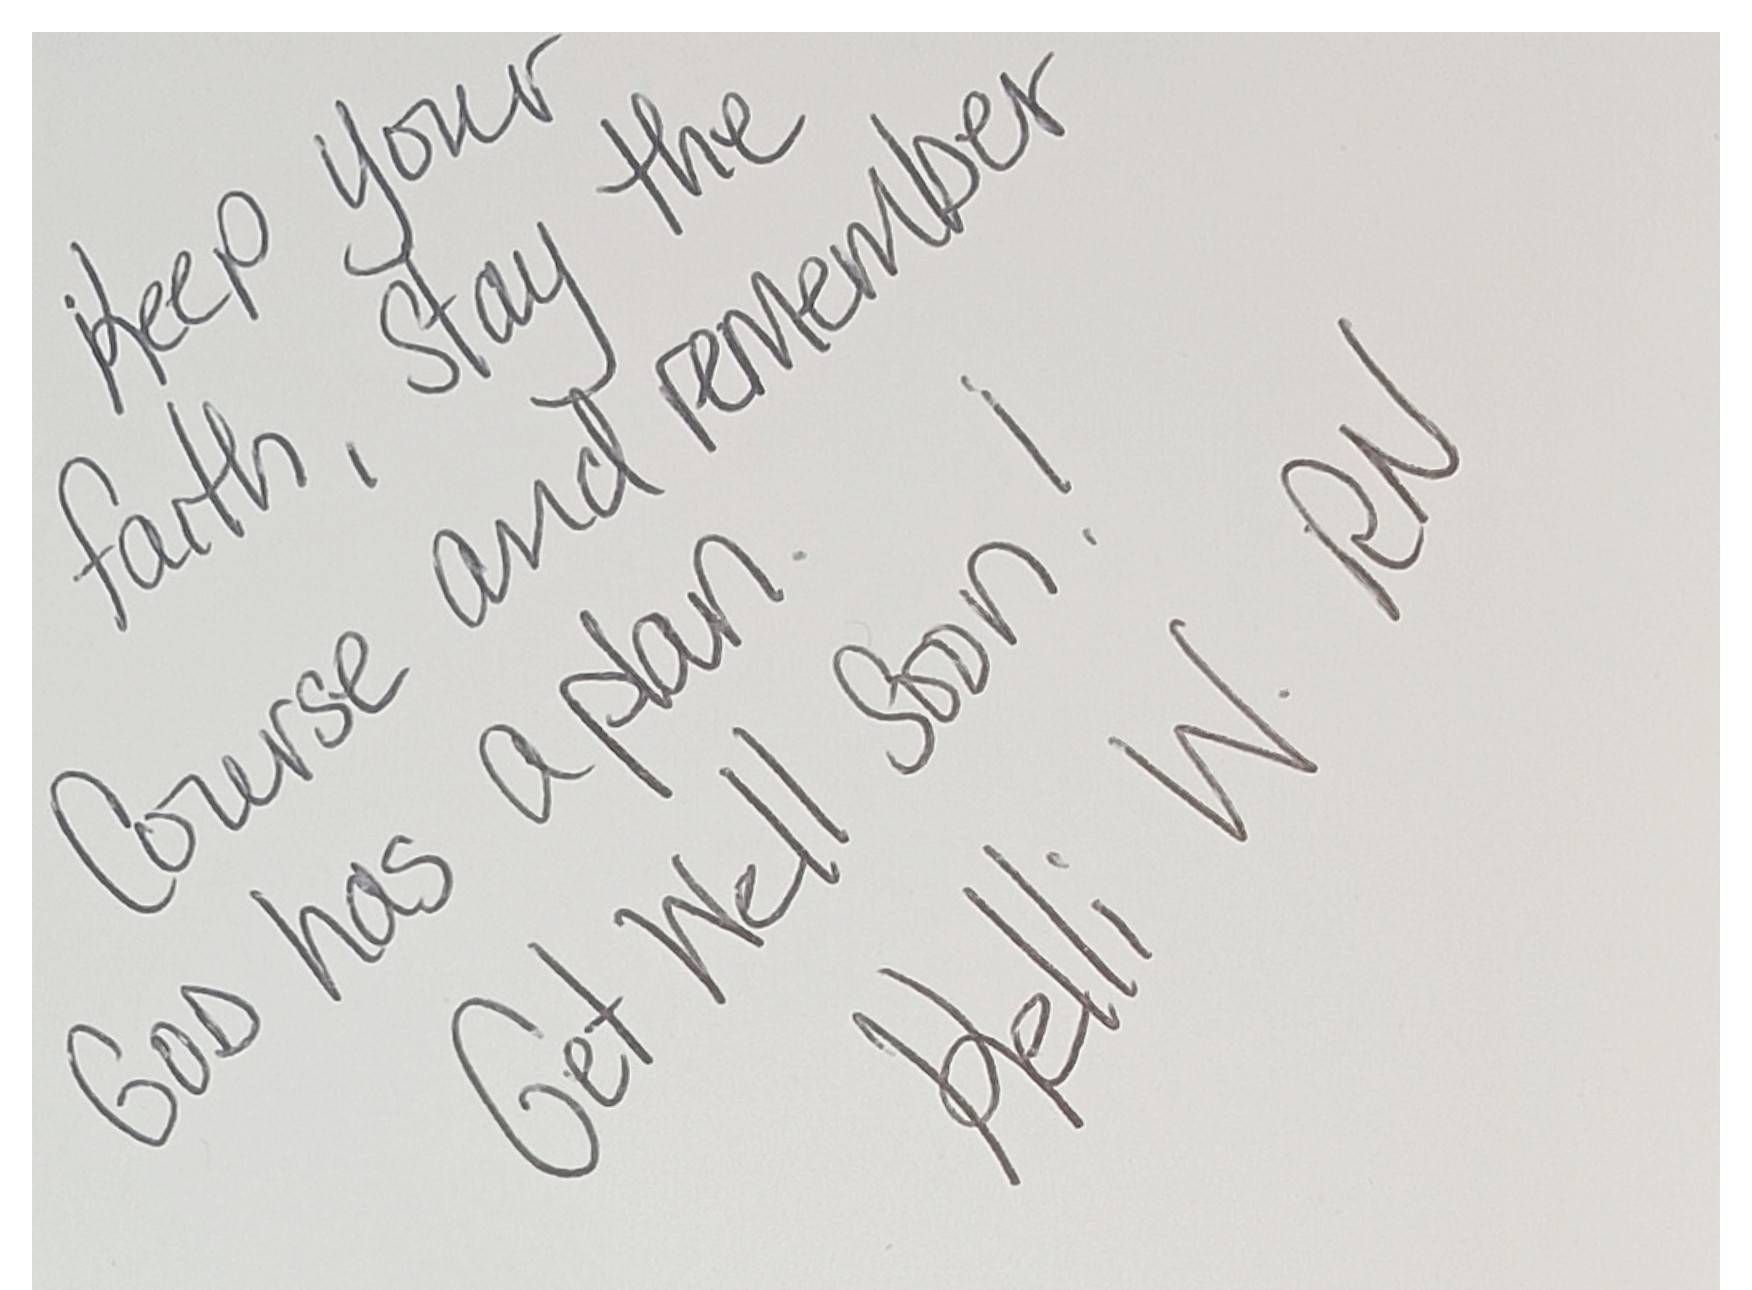 Keep your
faith, stay the
Course and remember
GOD has a plan.
Get Well Soon!
Kelli W. RN